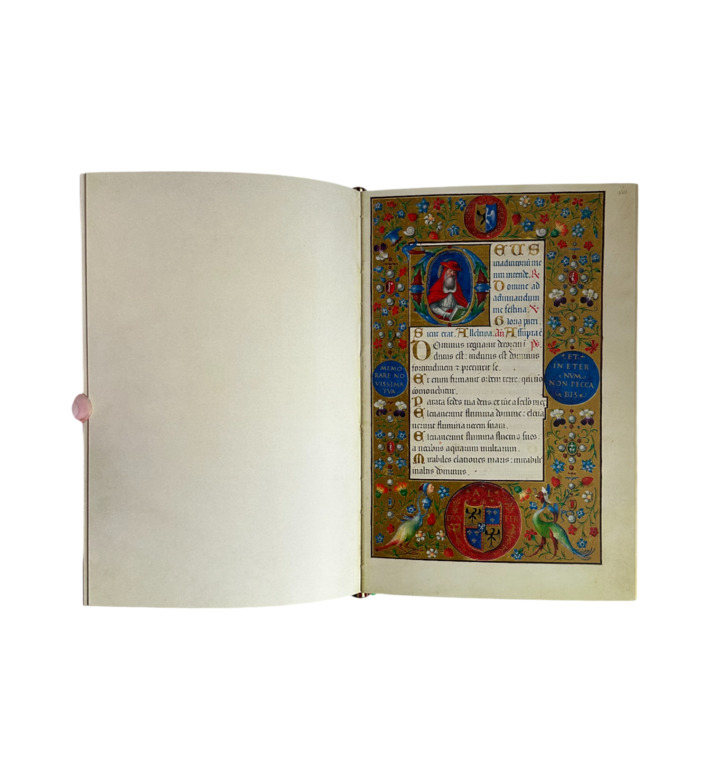 EUS
in adiutoriũ me
um intende. R
Domine ad
adiuuandum
me festina. V
Gloria patri.
Sicut erat. Alleluya. añ Assũpta ẽ
Dominus regnauit decorem ĩ ps
dutus est: indutus est dominus
fortitudinem ⁊ precinxit se.
Et enim firmauit orbem terre: qui nõ
comouebitur.
Parata sedes tua deus ex tũc a seclo tu es
Eleuauerunt flumina domine: eleua
uerunt flumina uocem suam.
Eleuauerunt flumina fluctus suos:
a uocibus aquarum multarum.
Mirabiles elationes maris: mirabilis
in altis dominus.
MEMO
RARE NO
VISSIMA
TVA
ET
IN ETER
NVM
NON PECCA
BIS